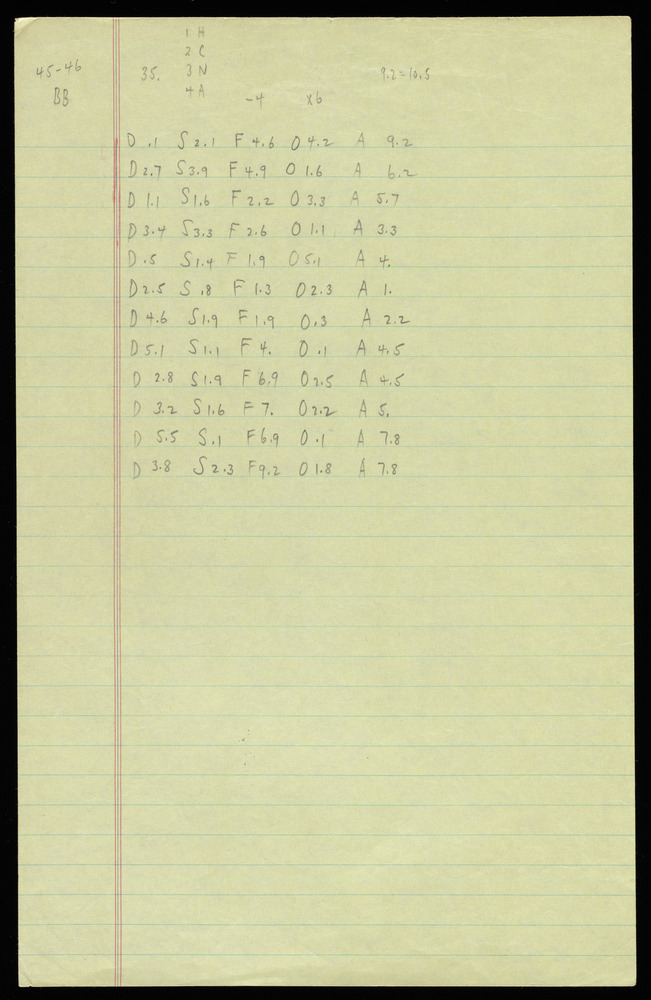 1 H
2 C
45-46 35. 3 N 9.2=10.5
BB 4 A
-4 x6
D .1 S 2.1 F 4.6 O 4.2 A 9.2
D 2.7 S 3.9 F 4.9 O 1.6 A 6.2
D 1.1 S 1.6 F 2.2 O 3.3 A 5.7
D 3.4 S 3.3 F 2.6 O 1.1 A 3.3
D .5 S 1.4 F 1.9 O 5.1 A 4.
D 2.5 S .8 F 1.3 O 2.3 A 1.
D 4.6 S 1.9 F 1.9 O .3 A 2.2
D 5.1 S 1.1 F 4. O .1 A 4.5
D 2.8 S 1.9 F 6.9 O 2.5 A 4.5
D 3.2 S 1.6 F 7. O 2.2 A 5.
D 5.5 S .1 F 6.9 O .1 A 7.8
D 3.8 S 2.3 F 9.2 O 1.8 A 7.8